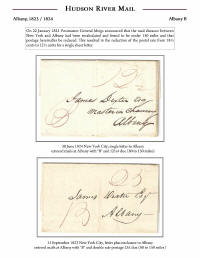 HUDSON RIVER MAIL
Albany, 1823 / 1824
Albany B
On 22 January 1823 Postmaster General Meigs announced that the mail distance between
New York and Albany had been recalculated and found to be under 150 miles and that
postage hereafter be reduced. This resulted in the reduction of the postal rate from 18½
cents to 12½ cents for a single sheet letter.
12½
James Dexter Esq
Master in Chancery
Albany
30 June 1824 New York City, single letter to Albany
entered mails at Albany with "B" and 12½¢ due (80 to 150 miles)
25
James Dexter Esq
Albany
13 September 1823 New York City, letter plus enclosure to Albany
entered mails at Albany with "B" and double rate postage 25¢ due (80 to 150 miles)